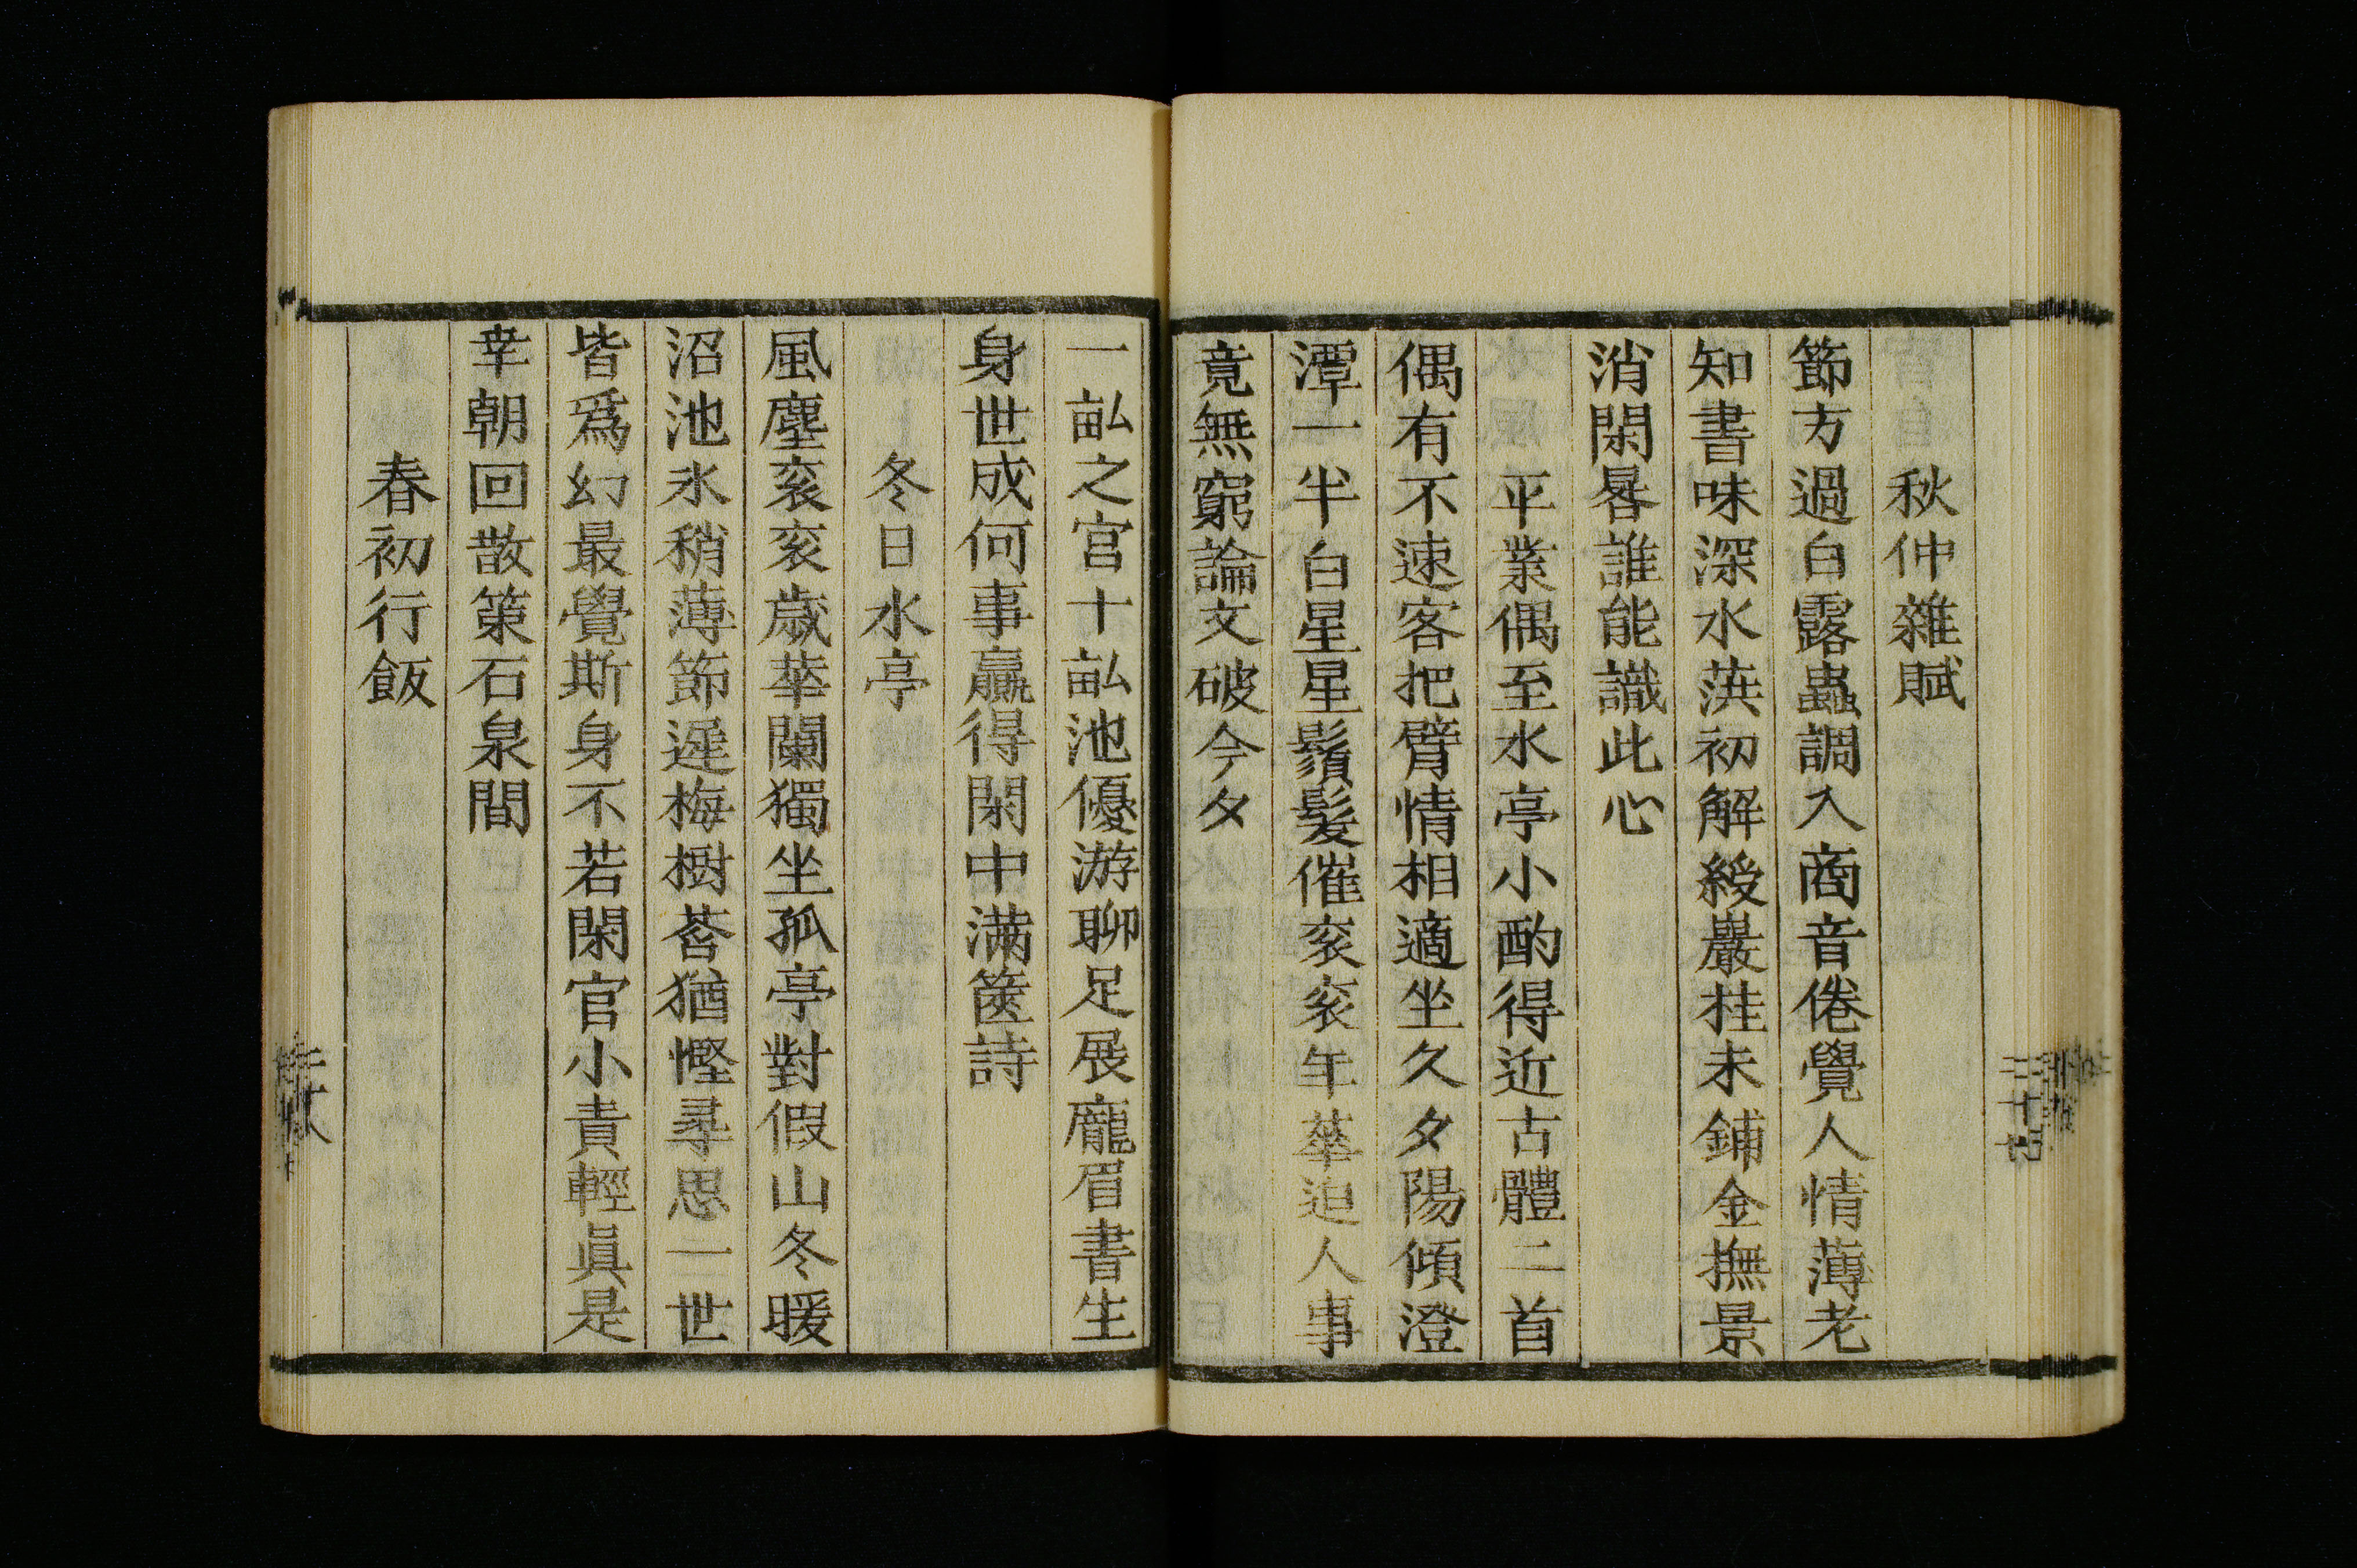 秋仲雜賦
節方過白露蟲調入商音倦覺人情薄老
知書味深水葓初解綬巖桂未鋪金撫景
消閑晷誰能識此心
平業偶至水亭小酌得近古體二首
偶有不速客把臂情相適坐久夕陽傾澄
潭一半白星星鬚髮催衮衮年華迫人事
竟無窮論文破今夕
一畝之宮十畝池優游聊足展龐眉書生
身世成何事贏得閑中滿篋詩
冬日水亭
風塵衮衮歲華闌獨坐孤亭對假山冬暖
沼池氷稍薄節遲梅樹萼猶慳尋思一世
皆爲幻最覺斯身不若閑官小責輕眞是
幸朝回散策石泉間
春初行飯